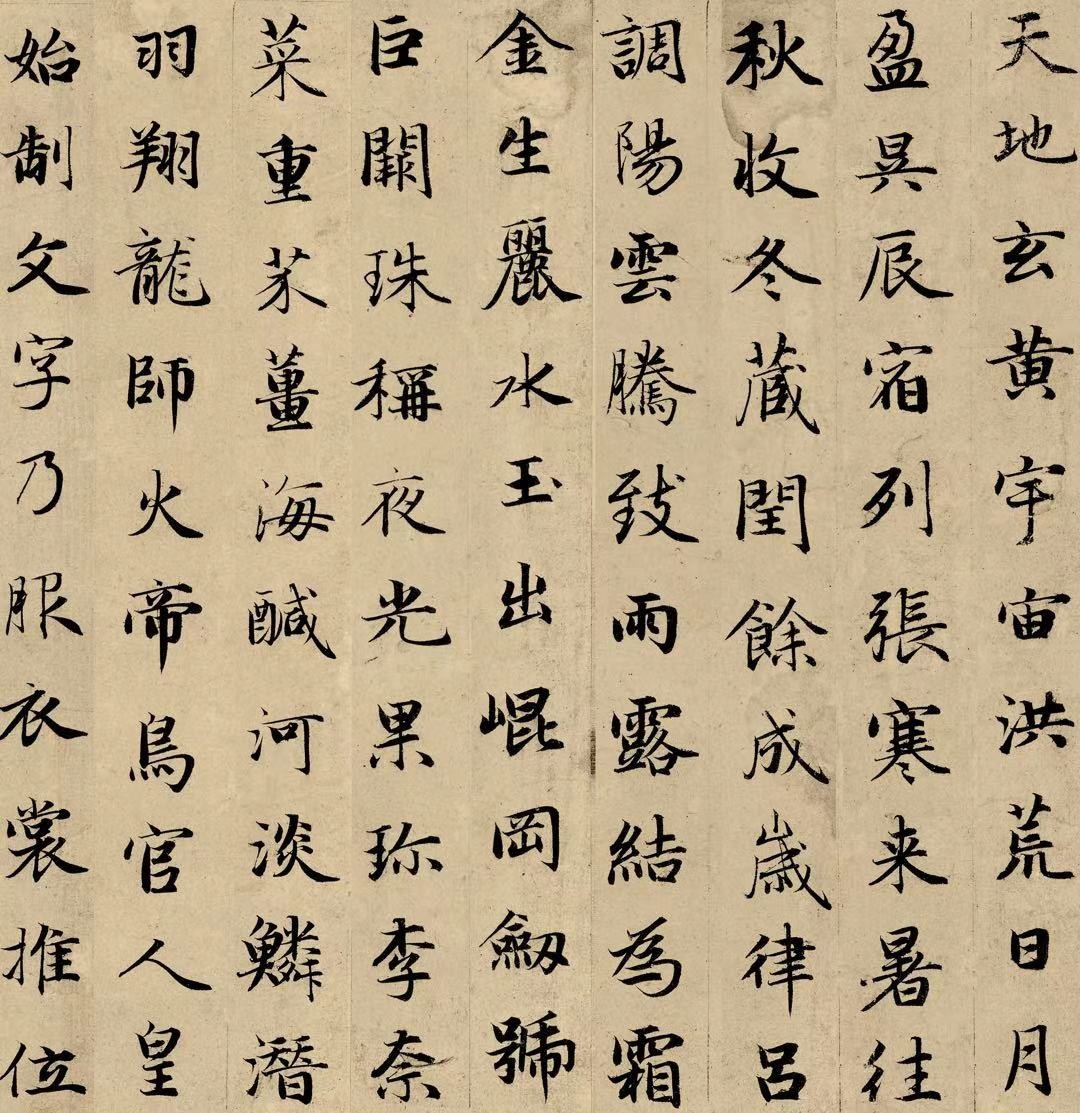 天地玄黄宇宙洪荒日月
盈昃辰宿列張寒来暑往
秋收冬蔵閏餘成歲律呂
調陽雲騰致雨露結為霜
金生麗水玉出崐岡劔號
巨闕珠稱夜光果珎李柰
菜重芥薑海醎河淡鱗潛
羽翔龍師火帝鳥官人皇
始制文字乃服衣裳推位